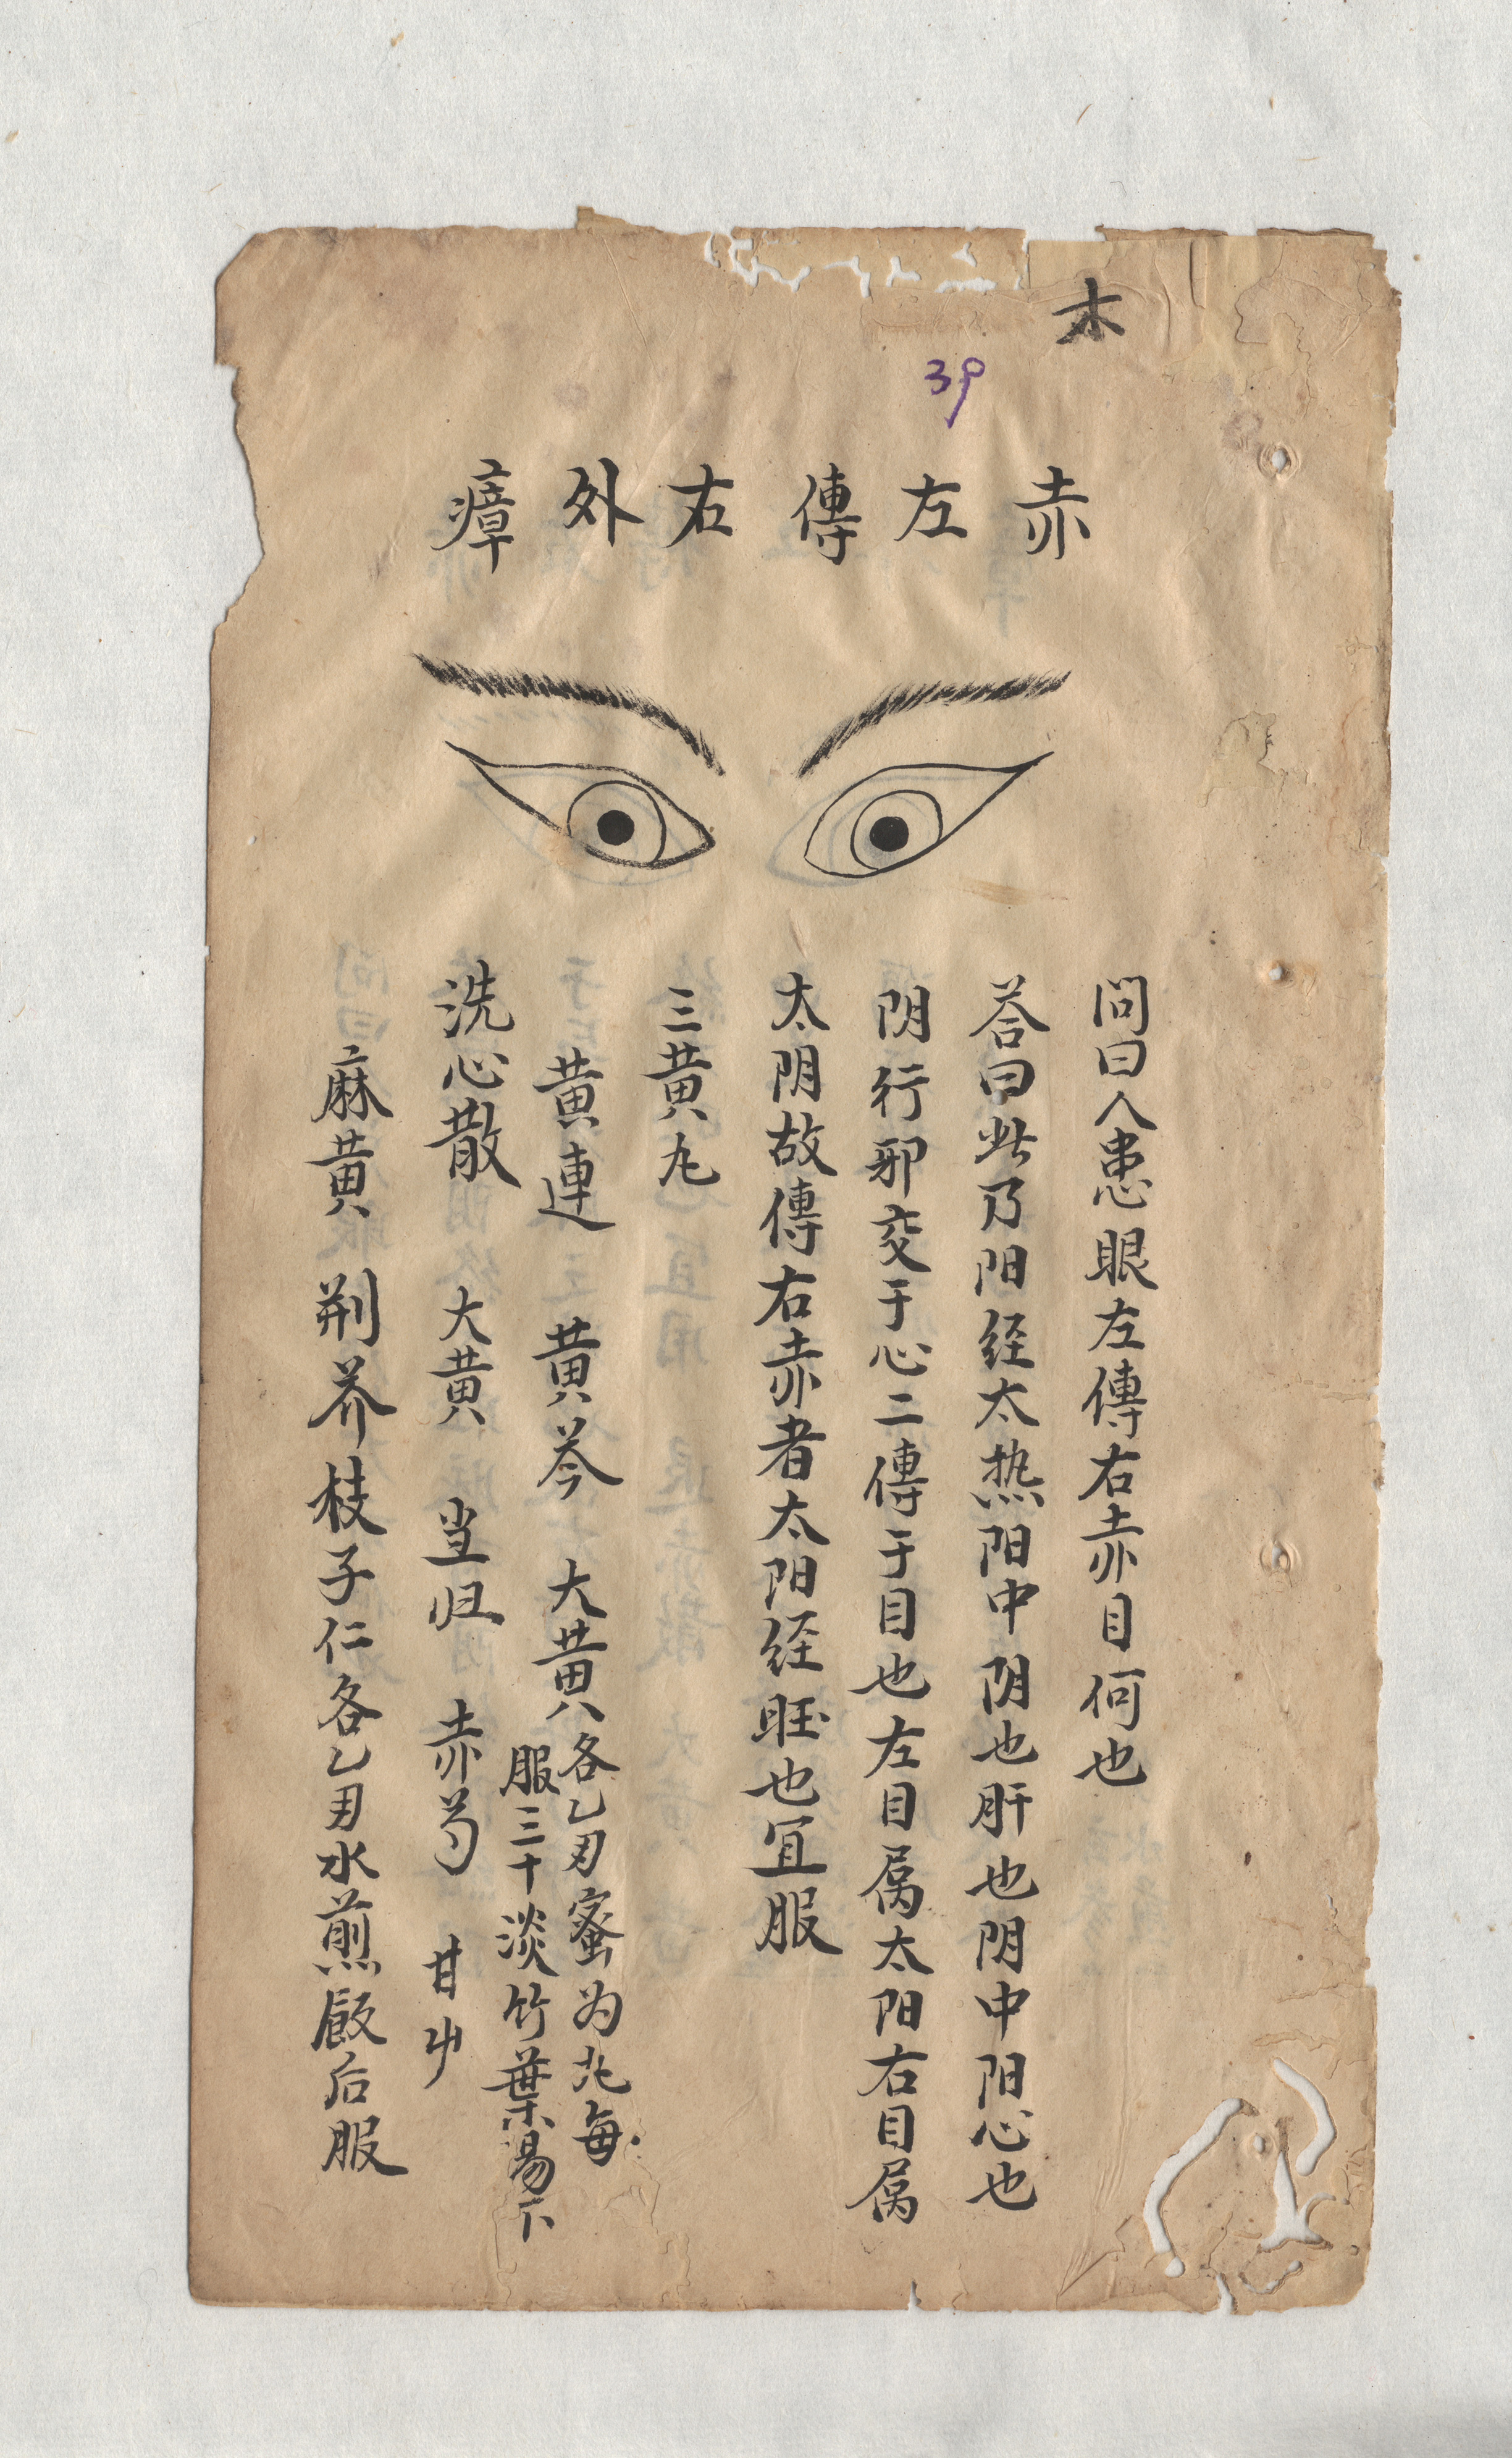 木
39
赤左傳右外瘴
问曰人患眼左傳右赤目何也
荅曰此乃阳经太热阳中阴也肝也阴中阳心也
阴行邪交于心二傳于目也左目属太阳右目属
太阴故傳右赤者太阳经旺也宜服
三黄丸
黄連 黄芩 大黄各乙刄蜜为丸每
服三十淡竹葉湯下
洗心散 大黄 当归 赤芍 甘屮
麻黄 荆芥枝子仁各乙刄水煎飯后服